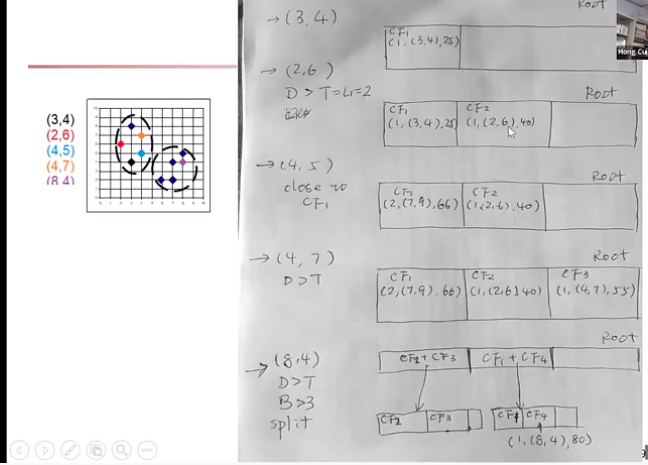 (3,4)
(2,6)
(4,5)
(4,7)
(8,4)
→ (3,4)
Root
CF1
(1,(3,4),25)
→ (2,6)
D > T=L1=2
Root
CF1
(1,(3,4),25)
CF2
(1,(2,6),40)
→ (4,5)
close to
CF1
Root
CF1
(2,(7,9),66)
CF2
(1,(2,6),40)
→ (4,7)
D>T
Root
CF1
(2,(7,9),66)
CF2
(1,(2,6),40)
CF3
(1,(4,7),55)
→ (8,4)
D>T
B>3
split
Root
CF2+CF3
CF1+CF4
CF2
CF3
CF1
CF4
(1,(8,4),80)
Hong Cui